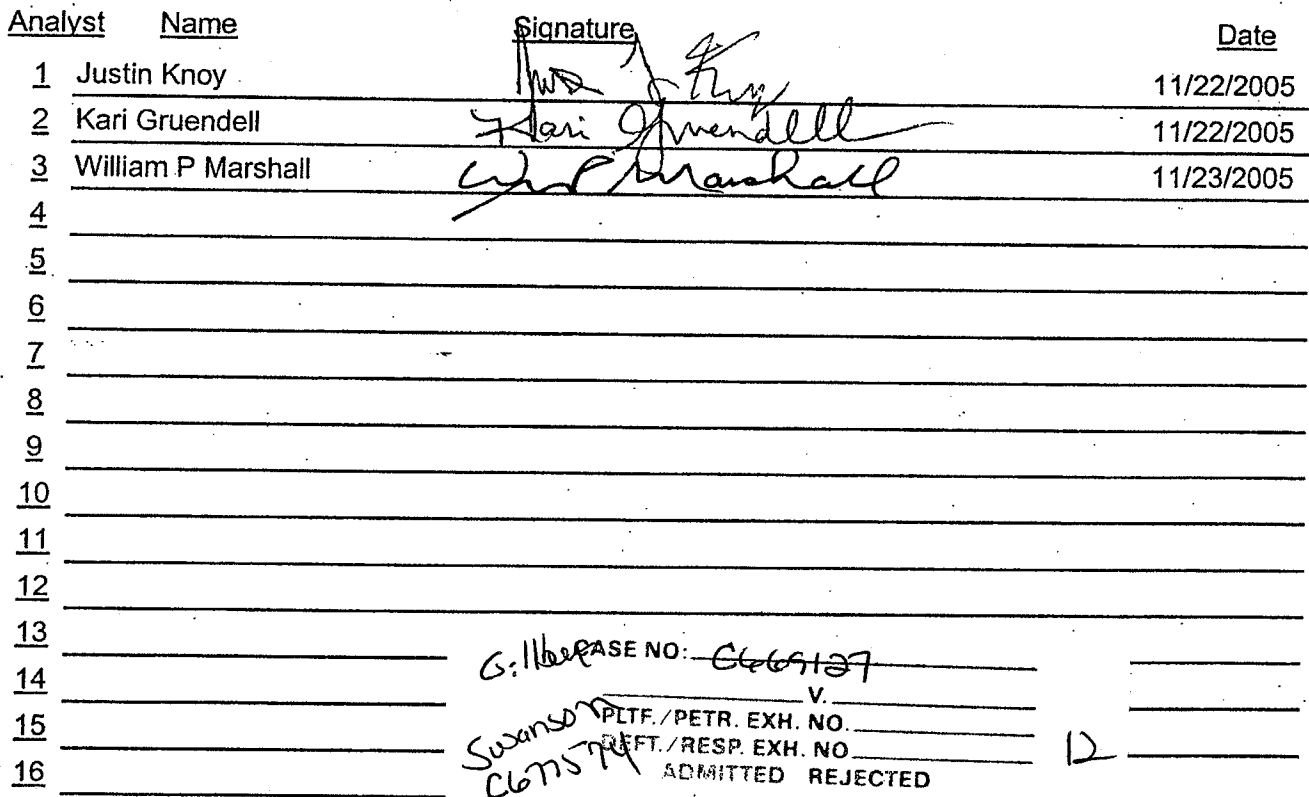 Analyst Name Signature Date
1 Justin Knoy 11/22/2005
2 Kari Gruendell Kari Gruendell 11/22/2005
3 William P Marshall Wm P Marshall 11/23/2005
4
5
6
7
8
9
10
11
12
13
CASE NO: C669127
14
V.
15 Swanson PLTF./PETR. EXH. NO.
DEFT./RESP. EXH. NO. 12
16 C677574 ADMITTED REJECTED